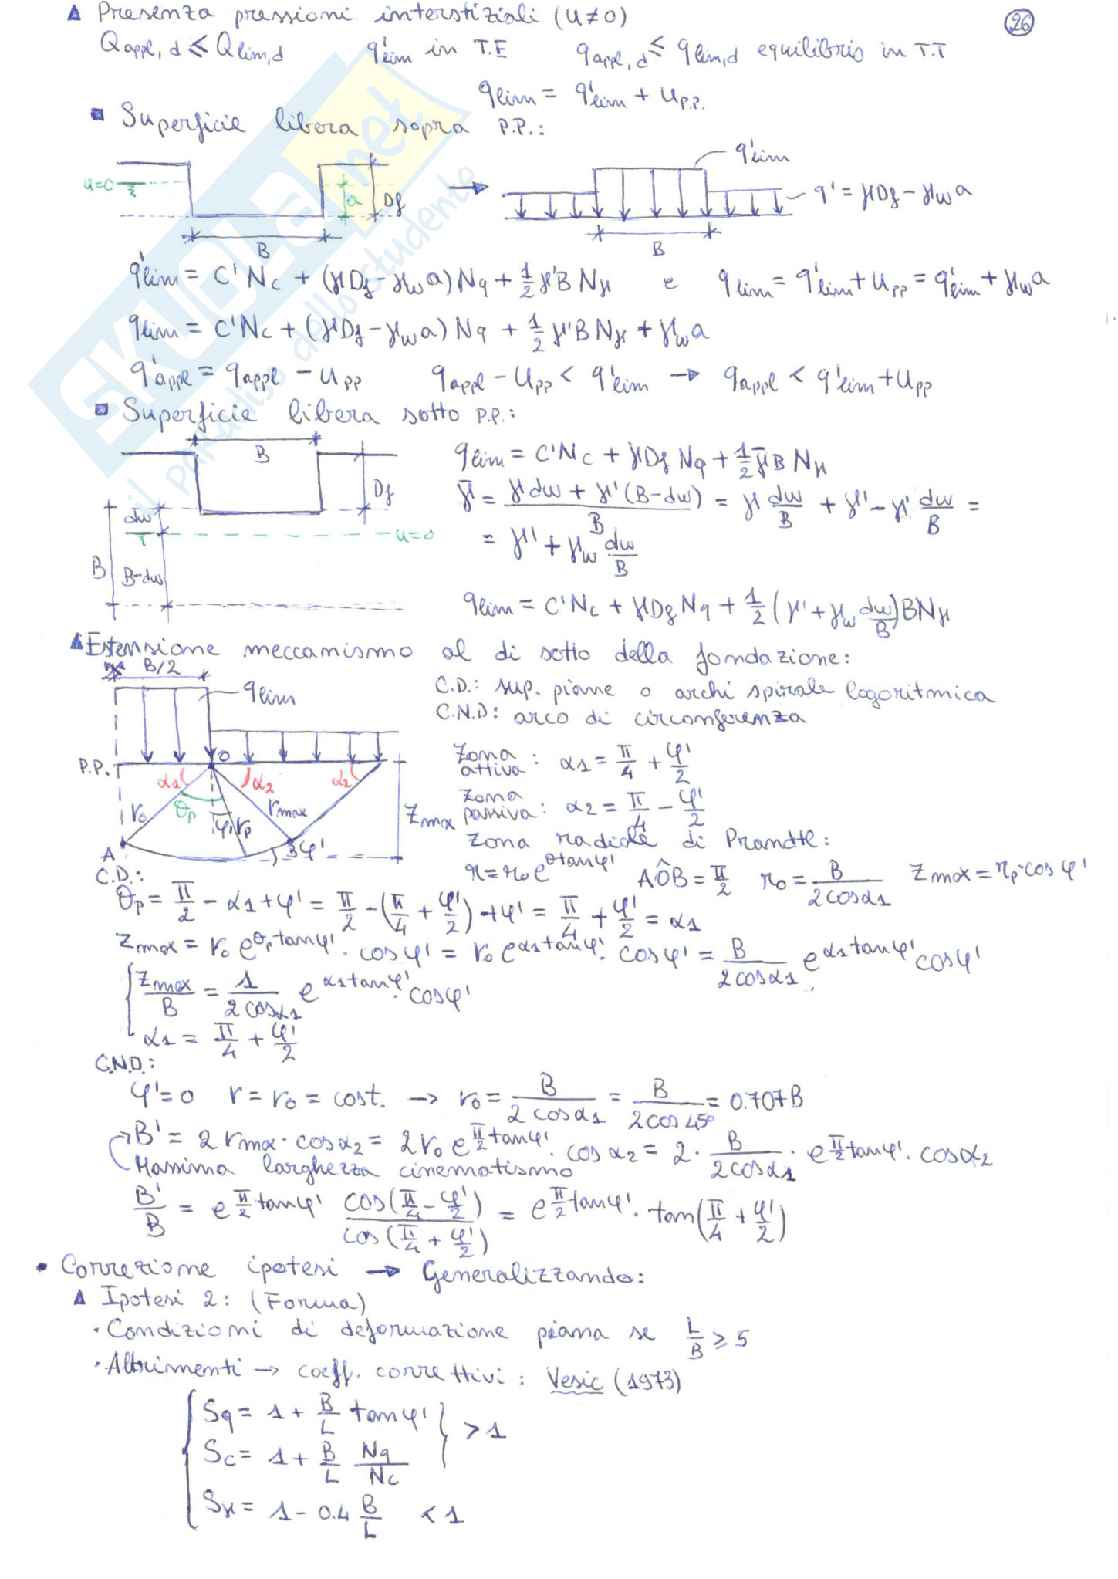 Δ Presenza pressioni interstiziali (u≠0)
26
Qappl,d ≤ Qlim,d q'lim in T.E qappl,d ≤ qlim,d equilibrio in T.T
qlim = q'lim + uP.P.
▪ Superficie libera sopra P.P.:
q'lim
u=0
a
Df
q' = γDf - γwa
B
B
q'lim = C'Nc + (γDf - γwa)Nq + 1/2 γ'B Nγ e qlim = q'lim + uPP = q'lim + γwa
qlim = C'Nc + (γDf - γwa) Nq + 1/2 γ'BNγ + γwa
q'appl = qappl - uPP qappl - uPP < q'lim → qappl < q'lim + uPP
▪ Superficie libera sotto P.P.:
B
qlim = C'Nc + γDf Nq + 1/2 γ̄ B Nγ
Df
γ̄ = (γdw + γ'(B-dw))/B = γ dw/B + γ' - γ' dw/B =
dw
u=0
= γ' + γw dw/B
B
B-dw
qlim = C'Nc + γDf Nq + 1/2 (γ' + γw dw/B)BNγ
Δ Estensione meccanismo al di sotto della fondazione:
B/2
qlim
C.D.: sup. piane o archi spirale logaritmica
C.N.D: arco di circonferenza
P.P.
O
Zona attiva: α1 = π/4 + φ'/2
α1
α2
α2
Zona passiva: α2 = π/4 - φ'/2
r0
θp
φ'
rp
rmax
Zmax
Zona radiale di Prandtl:
A
B
φ'
r = r0 e^θtanφ' AÔB = π/2 r0 = B/2cosα1 Zmax = rp·cosφ'
C.D.:
θp = π/2 - α1 + φ' = π/2 - (π/4 + φ'/2) + φ' = π/4 + φ'/2 = α1
Zmax = r0 e^θp tanφ' · cosφ' = r0 e^α1tanφ' · cosφ' = B/2cosα1 e^α1tanφ' cosφ'
{ Zmax/B = 1/2cosα1 e^α1tanφ' · cosφ'
α1 = π/4 + φ'/2
C.N.D.:
φ'=0 r = r0 = cost. → r0 = B/2cosα1 = B/2cos45° = 0.707B
B' = 2rmax·cosα2 = 2r0 e^π/2 tanφ' · cosα2 = 2· B/2cosα1 · e^π/2 tanφ' · cosα2
Massima larghezza cinematismo
B'/B = e^π/2 tanφ' cos(π/4 - φ'/2)/cos(π/4 + φ'/2) = e^π/2 tanφ' · tan(π/4 + φ'/2)
• Correzione ipotesi → Generalizzando:
Δ Ipotesi 2: (Forma)
· Condizioni di deformazione piana se L/B ≥ 5
· Altrimenti → coeff. correttivi: Vesic (1973)
{ Sq = 1 + B/L tanφ'
Sc = 1 + B/L Nq/Nc } > 1
Sγ = 1 - 0.4 B/L < 1
SKUOLA.net
il paradiso dello studente